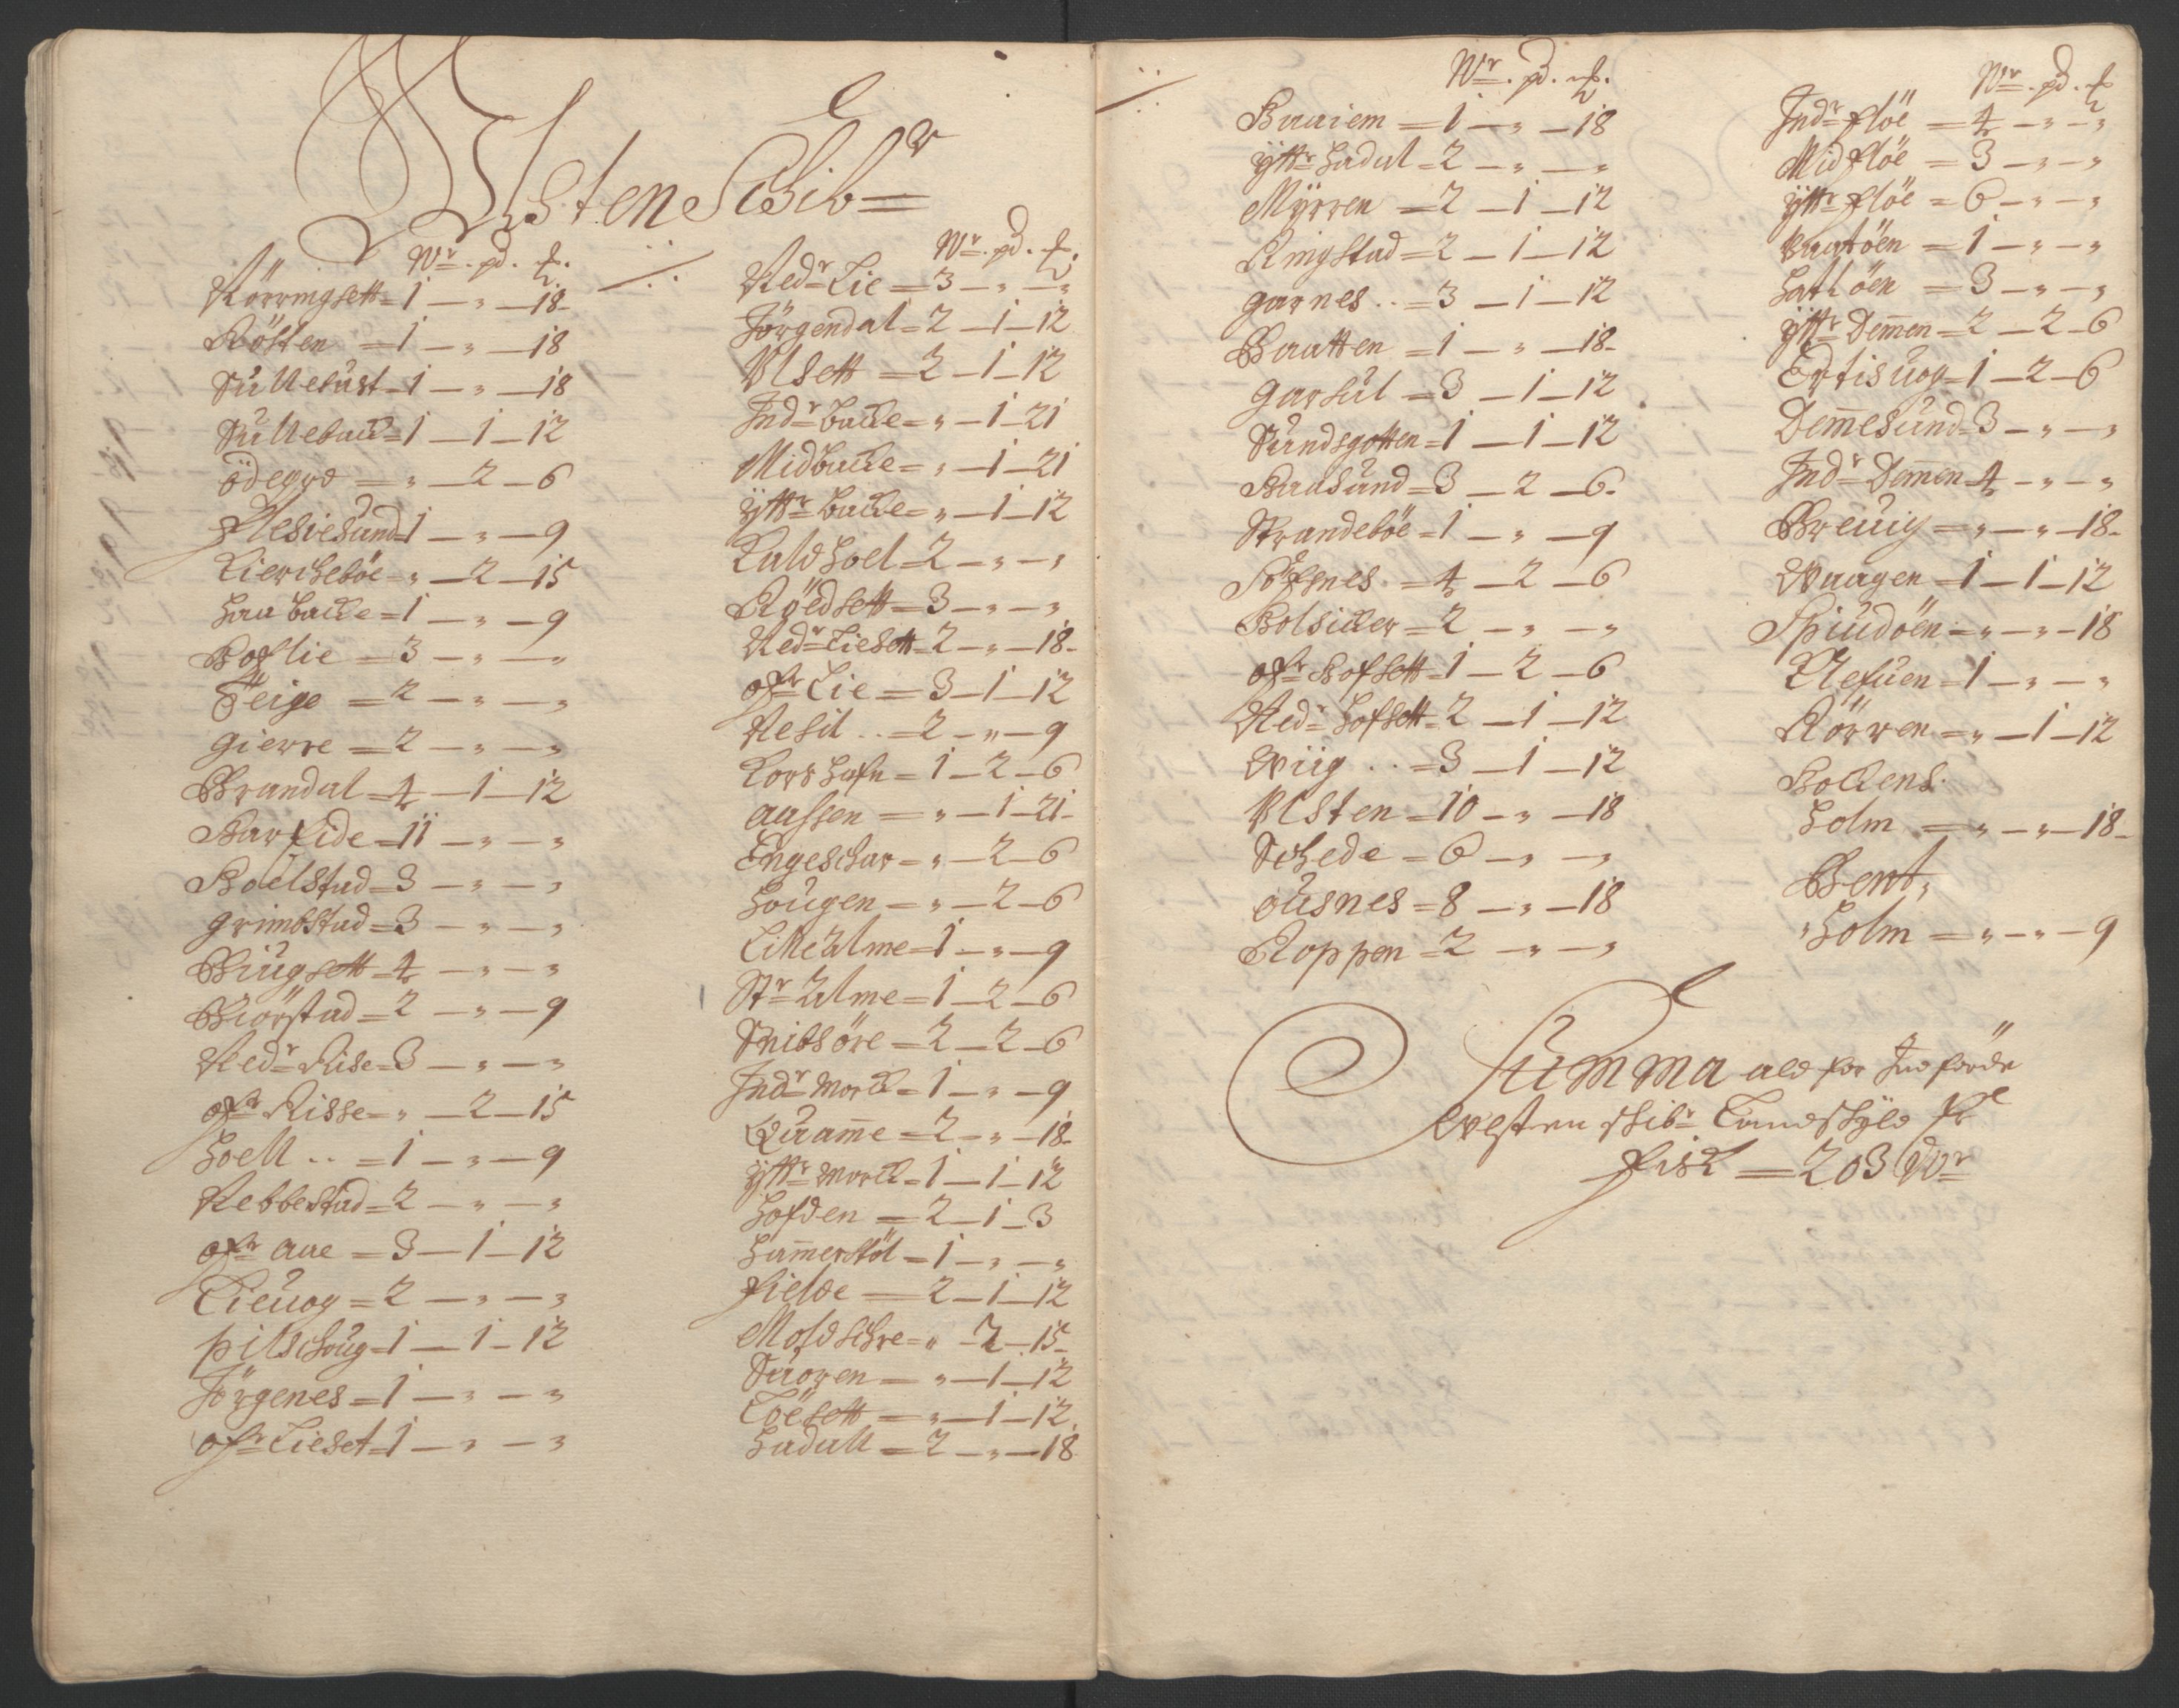 Ulsten Schibr
Wr. pd. £.
Rörringsett = 1 — „ — 18
Rösten = 1 — „ — 18
Sullebust = 1 — „ — 18
Sullebach = 1 — 1 — 12
ödegrd = „ — 2 — 6
Flesiesund = 1 — „ — 9
Kiercheböe = „ — 2 — 15
Haubacke = 1 — „ — 9
Boflie = 3 — „ — „
Teige = 2 — „ — „
Gierre = 2 — „ — „
Brandal = 4 — 1 — 12
Barside = 11 — „ — „
Boelstad = 3 — „ — „
Grimbstad = 3 — „ — „
Biugsett = 4 — „ — „
Biörstad = 2 — „ — 9
Nedr Rise = 3 — „ — „
ofr Risse = „ — 2 — 15
Hoell .. = 1 — „ — 9
Rebbestad = 2 — „ — „
ofr Aae = 3 — 1 — 12
Lieuog = 2 — „ — „
pilschoug = 1 — 1 — 12
Jörgenes = 1 — „ — „
ofr Lieset = 1 — „ — „
Wr. pd. £.
Nedr Lie = 3 — „ — „
Jörgendal = 2 — 1 — 12
Ulsett = 2 — 1 — 12
Indr backe = „ — 1 — 21
Midbacke = „ — 1 — 21
ÿttr backe = „ — 1 — 12
Kaldhoel = 2 — „ — „
Röedsett = 3 — „ — „
Nedr Liesett = 2 — „ — 18
ofr Lie = 3 — 1 — 12
Nesit .. = 2 — „ — 9
Korshafn = 1 — 2 — 6
Aassen = „ — 1 — 21
Engeschar = „ — 2 — 6
Hougen = „ — 2 — 6
Lille Alme = 1 — „ — 9
Str Alme = 1 — 2 — 6
Snibsöre = 2 — 2 — 6
Indr Morck = 1 — „ — 9
Quamme = 2 — „ — 18
ÿttr Morck = 1 — 1 — 12
Hofden = 2 — 1 — 3
Hammerstöl = 1 — „ — „
Fielde = 2 — 1 — 12
Moldschre = „ — 2 — 15
Suoren = „ — 1 — 12
Töesett = „ — 1 — 12
Hadall = 2 — „ — 18
Wr. pd. £.
Baaiem = 1 — „ — 18
ÿttr Hadal = 2 — „ — „
Mÿrren = 2 — 1 — 12
Ringstad = 2 — 1 — 12
Garnes .. = 3 — 1 — 12
Baatten = 1 — „ — 18
Garsul = 3 — 1 — 12
Sundsgotten = 1 — 1 — 12
Bausund = 3 — 2 — 6
Strandeböe = 1 — „ — 9
Söfsnes = 4 — 2 — 6
Bolsicker = 2 — „ — „
ofr Hofsett = 1 — 2 — 6
Nedr Hofsett = 2 — 1 — 12
Wiig .. = 3 — 1 — 12
Ulsten = 10 — „ — 18
Schede = 6 — „ — „
Ousnes = 8 — „ — 18
Roppen = 2 — „ — „
Wr. pd. £
Indr flöe = 4 — „ — „
Midflöe = 3 — „ — „
ÿttr flöe = 6 — „ — „
Vaatöen = 1 — „ — „
Hatlöen = 3 — „ — „
ÿttr Demmen = 2 — 2 — 6
Ertisuog = 1 — 2 — 6
Demmesund = 3 — „ — „
Indr Demmen = 4 — „ — „
Breuig = „ — „ — 18
Waagen = 1 — 1 — 12
Spiudöen = „ — „ — 18
Klefuen = 1 — „ — „
Rörren = „ — 1 — 12
Bockens
Holm = „ — „ — 18
Bent,
Holm = „ — „ — 9
Summa ald for Indförde
Wlsten schibr Landschÿld er
fisk = 203 Wr